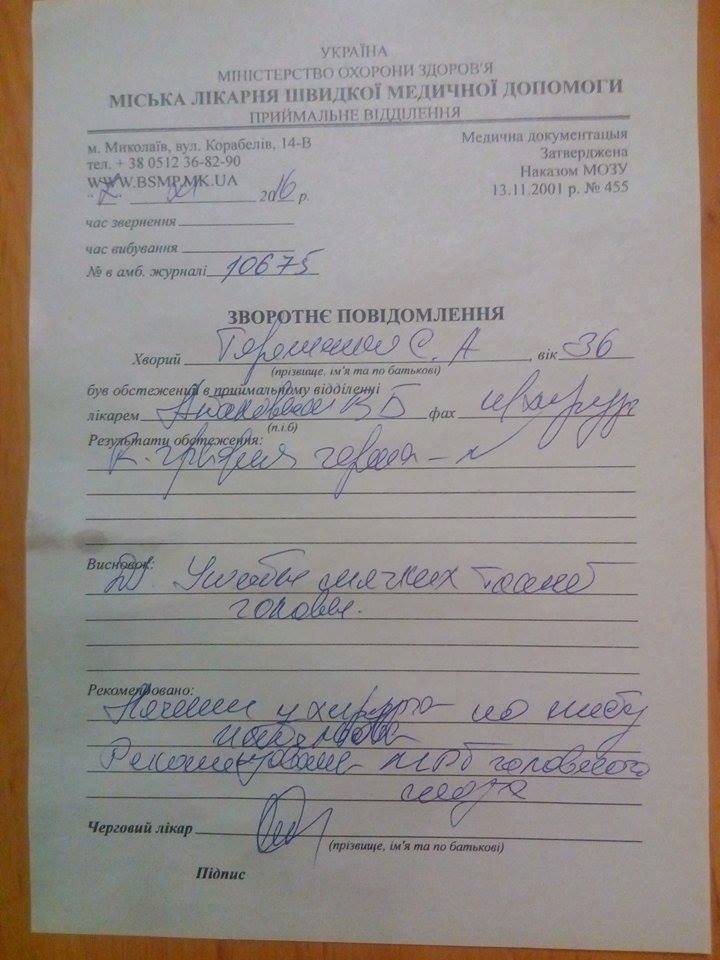 УКРАЇНА
МІНІСТЕРСТВО ОХОРОНИ ЗДОРОВ'Я
МІСЬКА ЛІКАРНЯ ШВИДКОЇ МЕДИЧНОЇ ДОПОМОГИ
ПРИЙМАЛЬНЕ ВІДДІЛЕННЯ
м. Миколаїв, вул. Корабелів, 14-В
тел. + 38 0512 36-82-90
WWW.BSMP.MK.UA
Медична документацыя
Затверджена
Наказом МОЗУ
13.11.2001 р. № 455
2016 р.
час звернення
час вибування
№ в амб. журналі 10675
ЗВОРОТНЄ ПОВІДОМЛЕННЯ
Хворий С. А , вік 36
(прізвище, ім'я та по батькові)
був обстежений в приймальному відділенні
лікарем В Б фах
(п.і.б)
Результати обстеження:
черепа - N
Висновок:
Ds. Ушибы мягких тканей
головы.
Рекомендовано:
у хирурга по м/жбу
Рекомендована МРТ головного
мозга
Черговий лікар
(прізвище, ім'я та по батькові)
Підпис